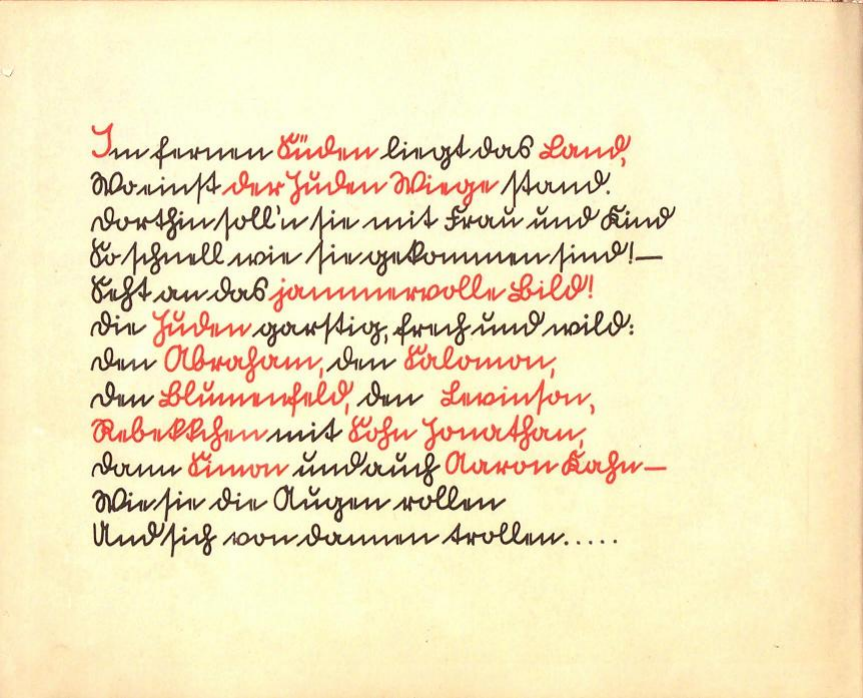 Im fernen Süden liegt das Land,
Wo einst der Juden Wiege stand.
Dorthin soll'n sie mit Frau und Kind
So schnell wie sie gekommen sind! —
Seht an das jammervolle Bild!
Die Juden garstig, frech und wild:
Den Abraham, den Salomon,
Den Blumenfeld, den Levinson,
Rebekkchen mit Sohn Jonathan,
Dann Simon und auch Aaron Kahn —
Wie sie die Augen rollen
Und sich von dannen trollen.....